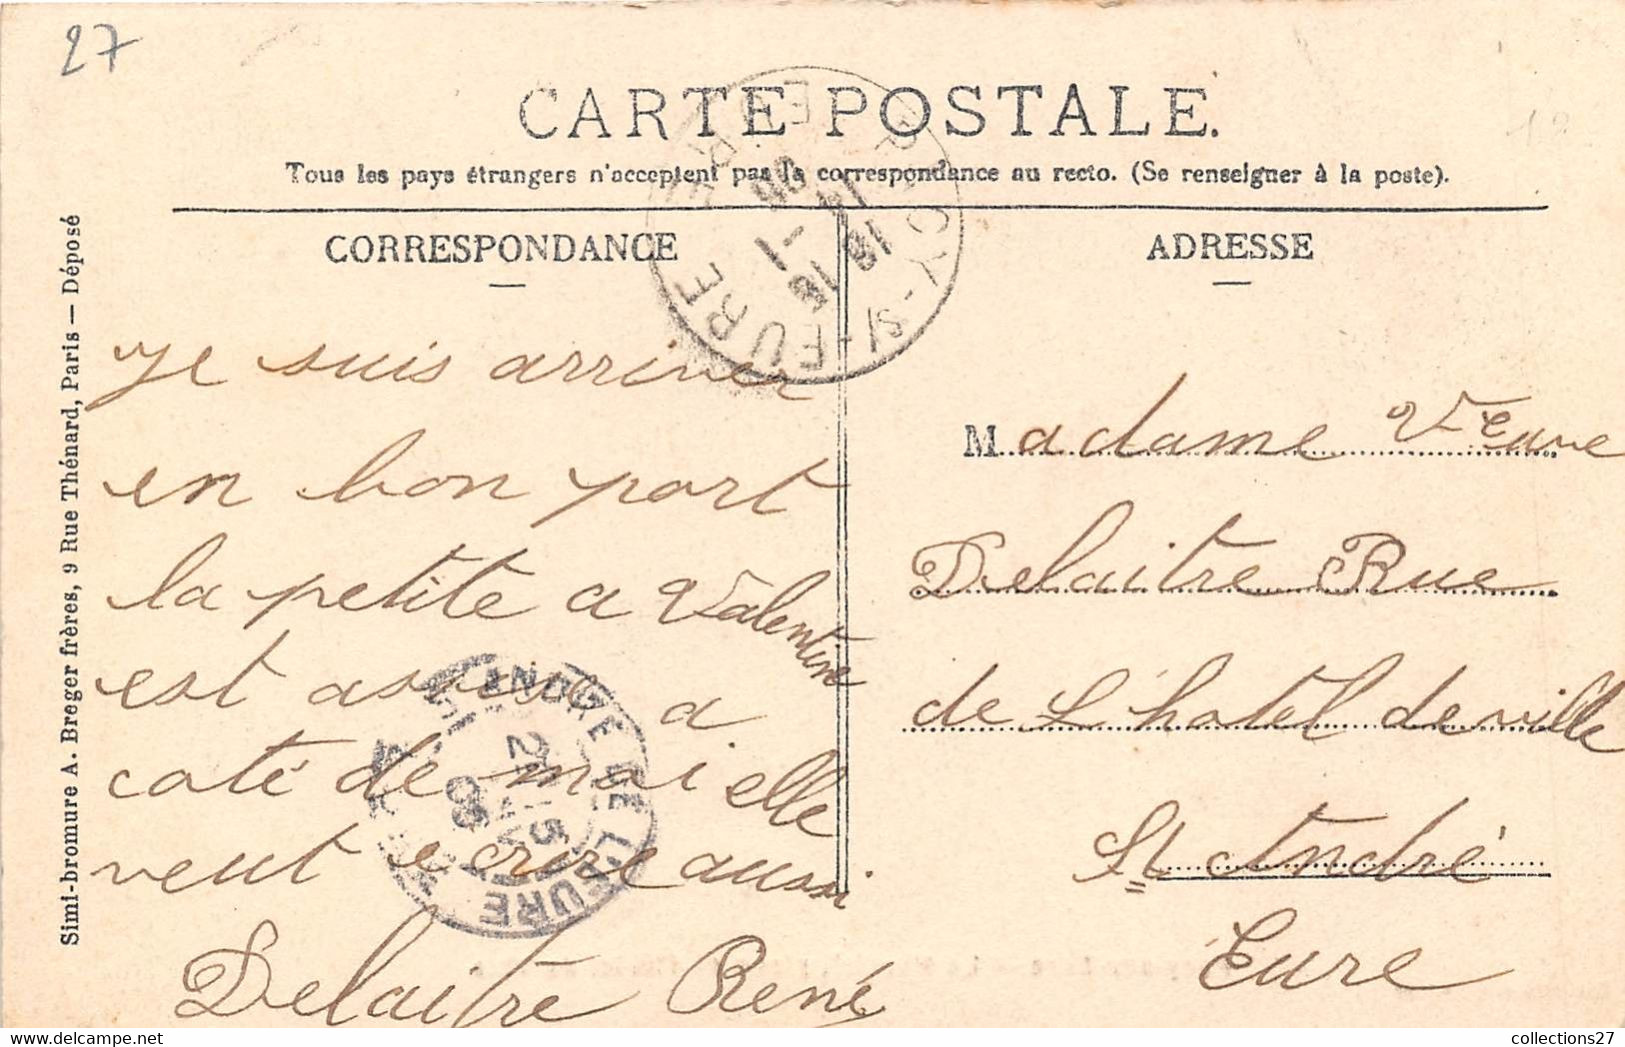 27
CARTE POSTALE.
Tous les pays étrangers n'acceptent pas la correspondance au recto. (Se renseigner à la poste).
CORRESPONDANCE
Je suis arriver
en bon port
la petite a Valentine
est assise a
coté de moi elle
veut ecrire aussi
Delaitre René
ADRESSE
Madame Veuve
Delaitre Rue
de L'hotel de ville
St André
Eure
Simi-bromure A. Breger frères, 9 Rue Thénard, Paris — Déposé
S/-EURE
EURE
18
16 -1
ANDRÉ DE L'EURE
collections27